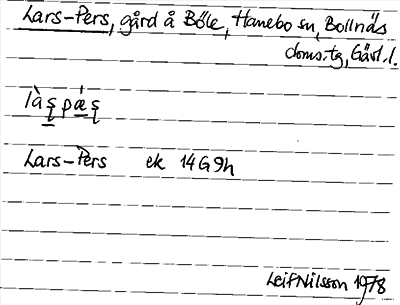 Lars-Pers, gård å Böle, Hanebo sn, Bollnäs
doms.tg, Gävl.l.
làʂpǽʂ
Lars-Pers ek 14G9h
Leif Nilsson 1978